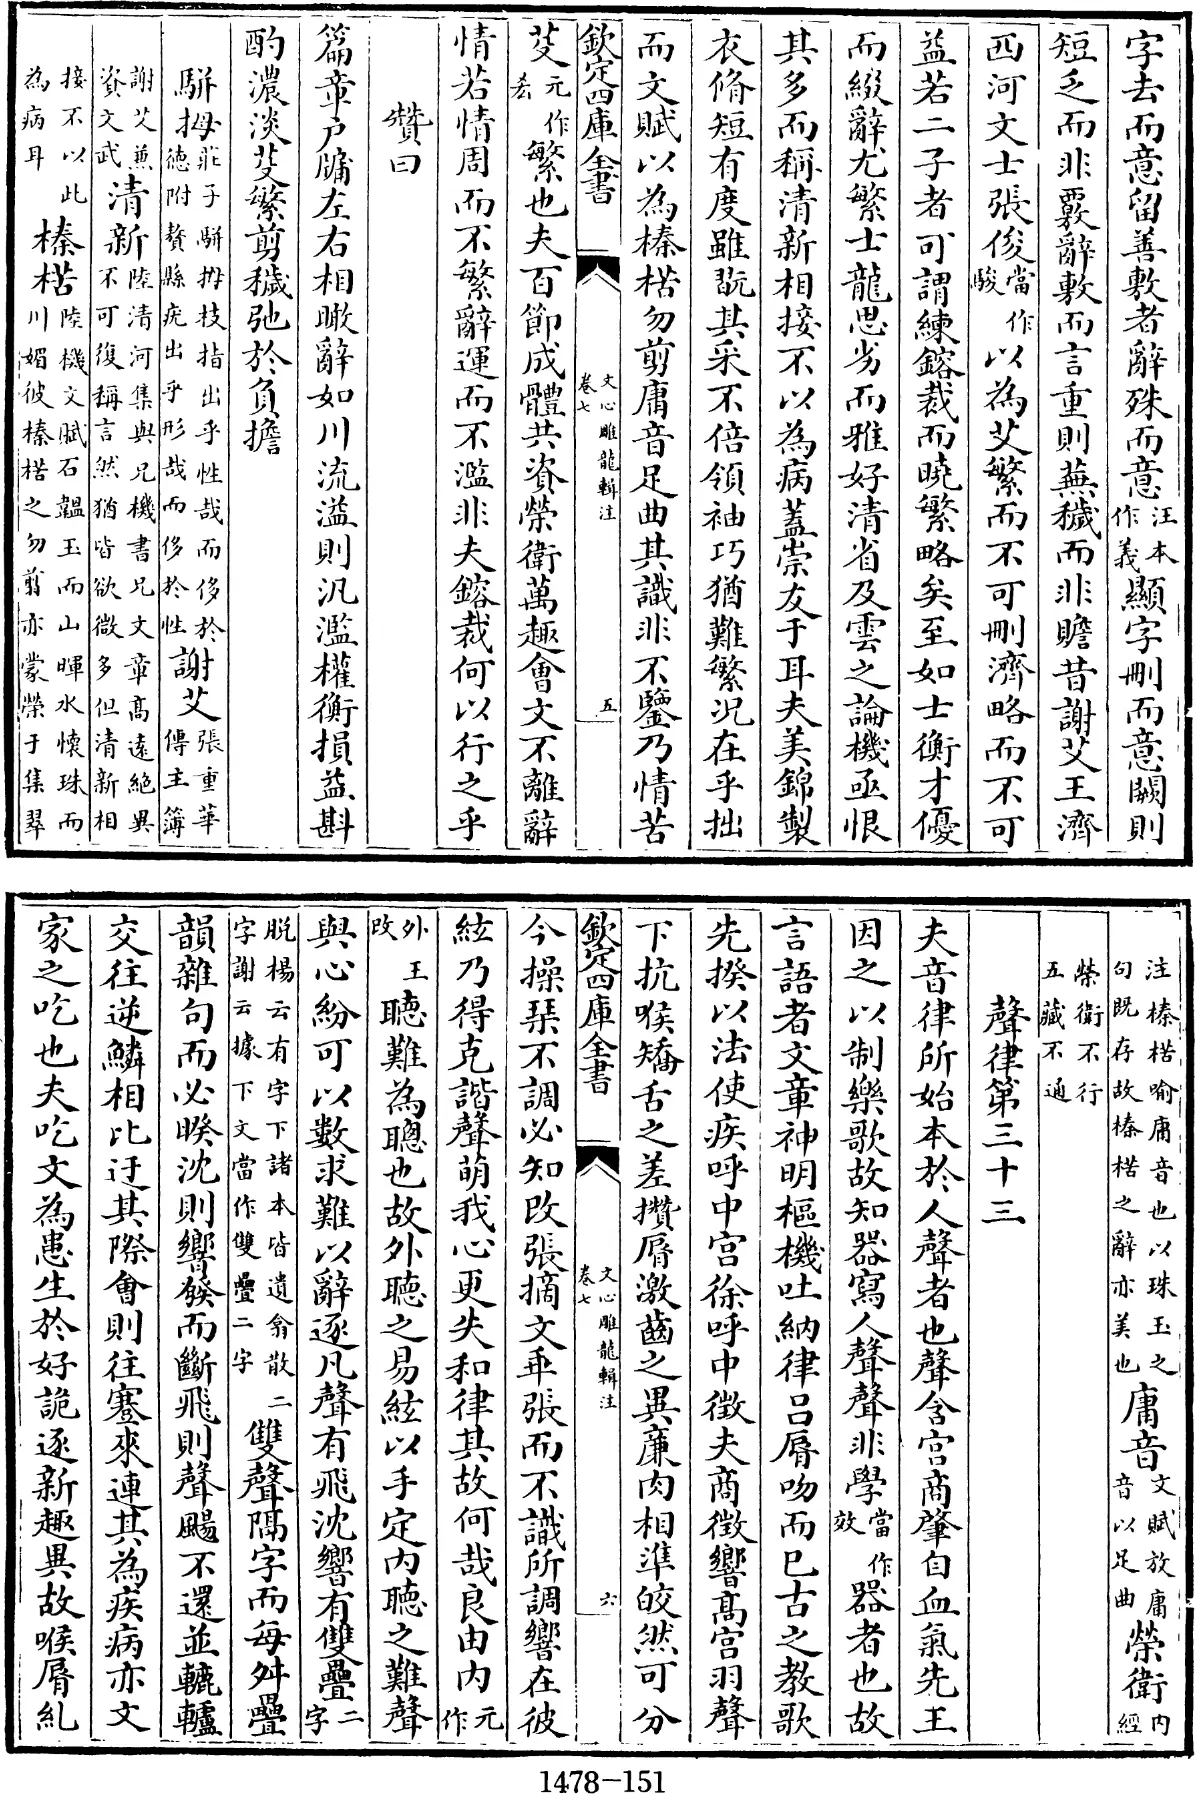 字去而意留善敷者辭殊而意汪本作義顯字刪而意闕則
短乏而非覈辭敷而言重則蕪穢而非贍昔謝艾王濟
西河文士張俊當作駿以為艾繁而不可刪濟略而不可
益若二子者可謂練鎔裁而曉繁略矣至如士衡才優
而綴辭尤繁士龍思劣而雅好清省及雲之論機亟恨
其多而稱清新相接不以為病蓋崇友于耳夫美錦製
衣脩短有度雖翫其采不倍領袖巧猶難繁况在乎拙
而文賦以為榛楛勿剪庸音足曲其識非不鑒乃情苦
欽定四庫全書
文心雕龍輯注
卷七
五
芟元作㕙繁也夫百節成體共資榮衛萬趣會文不離辭
情若情周而不繁辭運而不濫非夫鎔裁何以行之乎
贊曰
篇章戶牖左右相瞰辭如川流溢則汎濫權衡損益斟
酌濃淡芟繁剪穢弛於負擔
駢拇莊子駢拇枝指出乎性哉而侈於德附贅縣疣出乎形哉而侈於性謝艾張重華傳主簿
謝艾兼資文武清新陸清河集與兄機書兄文章高遠絶異不可復稱言然猶皆欲微多但清新相
接不以此為病耳榛楛陸機文賦石韞玉而山暉水懷珠而川媚彼榛楛之勿翦亦蒙榮于集翠
注榛楛喻庸音也以珠玉之句既存故榛楛之辭亦美也庸音文賦放庸音以足曲榮衛内經
榮衛不行五藏不通
聲律第三十三
夫音律所始本於人聲者也聲含宫商肇自血氣先王
因之以制樂歌故知器寫人聲聲非學當作效器者也故
言語者文章神明樞機吐納律吕脣吻而已古之教歌
先揆以法使疾呼中宫徐呼中徵夫商徵響髙宫羽聲
下抗喉矯舌之差攢脣激齒之異廉肉相準皎然可分
欽定四庫全書
文心雕龍輯注
卷七
六
今操琴不調必知改張摘文乖張而不識所調響在彼
絃乃得克諧聲萌我心更失和律其故何哉良由内元作
外王改聽難為聰也故外聽之易絃以手定内聽之難聲
與心紛可以數求難以辭逐凡聲有飛沈響有雙疊二字
脱楊云有字下諸本皆遺翕散二字謝云據下文當作雙疊二字雙聲隔字而每舛疊
韻雜句而必睽沈則響發而斷飛則聲颺不還並轆轤
交往逆鱗相比迂其際會則往蹇來連其為疾病亦文
家之吃也夫吃文為患生於好詭逐新趣異故喉脣糺
1478-151